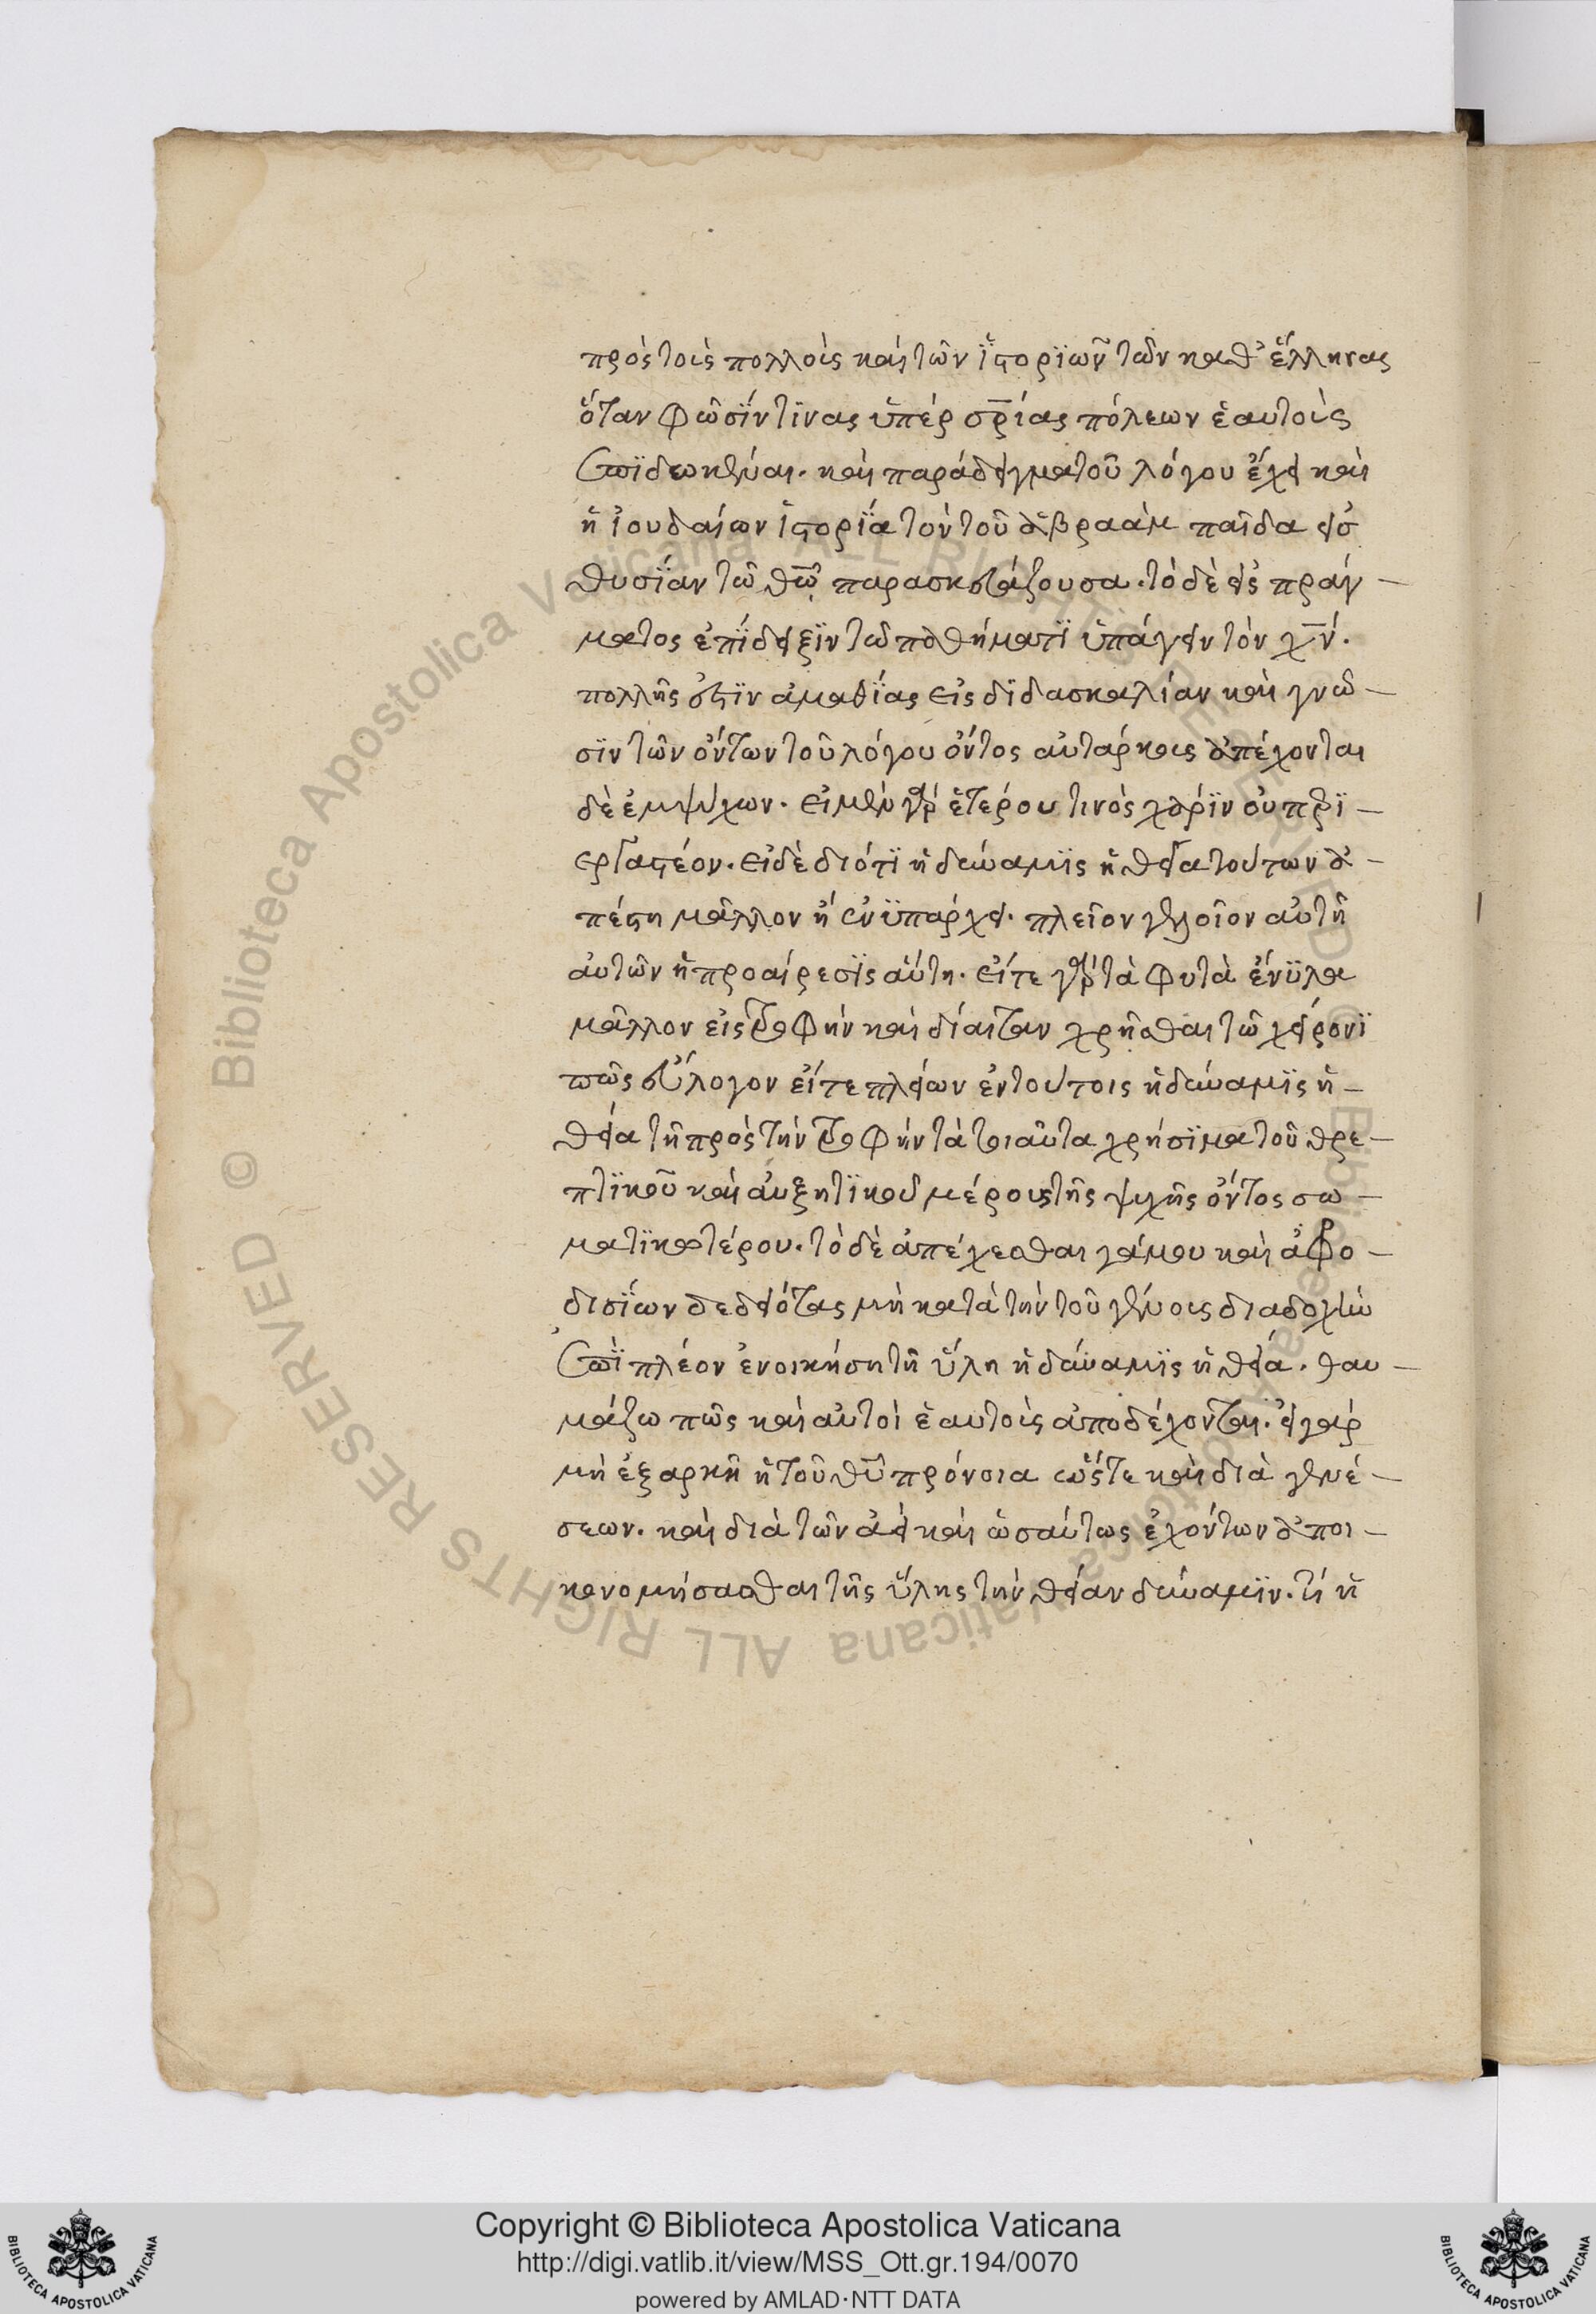 πρὸς τοῖς πολλοῖς καὶ τῶν ἱστοριῶν τῶν καθ' ἕλληνας
ὅταν φῶσίν τινας ὑπὲρ σρίας πόλεων ἑαυτοὺς
ἐπιδεδωκέναι. καὶ παράδειγμα τοῦ λόγου ἔχει καὶ
ἡ ἰουδαίων ἱστορία τὸν τοῦ ἀβραὰμ παῖδα εἰς
θυσίαν τῶ θῶ παρασκευάζουσα. τὸ δὲ εἰς πράγ–
ματος ἐπίδειξιν τῶ παθήματι ὑπάγειν τὸν χν.
πολλῆς ἐστιν ἀμαθίας εἰς διδασκαλίαν καὶ γνῶ–
σιν τῶν ὄντων τοῦ λόγου ὄντος αὐτάρκους ἀπέχονται
δὲ ἐμψύχων. εἰ μὲν γὰρ ἑτέρου τινὸς χάριν οὐ περι–
εργαστέον. εἰ δὲ διότι ἡ δύναμις ἡ θεία τούτων ἀ–
πέστη μᾶλλον ἢ ἐνυπάρχει. πλεῖον γελοῖον αὐτὴ
αὐτῶν ἡ προαίρεσις αὕτη. εἴτε γὰρ τὰ φυτὰ ἔνυλα
μᾶλλον εἰς τροφὴν καὶ δίαιταν χρῆσθαι τῶ χείρονι
πῶς εὔλογον εἴτε πλείων ἐν τούτοις ἡ δύναμις ἡ–
θεία τῆ πρὸς τὴν τροφὴν τὰ τοιαῦτα χρήσιμα τοῦ θρε–
πτικοῦ καὶ αὐξητικοῦ μέρους τῆς ψυχῆς ὄντος σω–
ματικωτέρου. τὸ δὲ ἀπέχεσθαι γάμου καὶ ἀφρο–
δισίων δεδιότας μὴ κατὰ τὴν τοῦ γένους διαδοχὴν
ἐπὶ πλέον ἐνοικήση τῆ ὕλη ἡ δύναμις ἡ θεία. θαυ–
μάζω πῶς καὶ αὐτοὶ ἑαυτοὺς ἀποδέχονται. εἰ γὰρ
μὴ ἐξαρκῆ ἡ τοῦ θῦ πρόνοια ὥστε καὶ διὰ γενέ–
σεων. καὶ διὰ τῶν ἀεὶ καὶ ὡσαύτως ἐχόντων ἀποι–
κονομήσασθαι τῆς ὕλης τὴν θείαν δύναμιν. τί ἡ
Copyright © Biblioteca Apostolica Vaticana
http://digi.vatlib.it/view/MSS_Ott.gr.194/0070
powered by AMLAD·NTT DATA